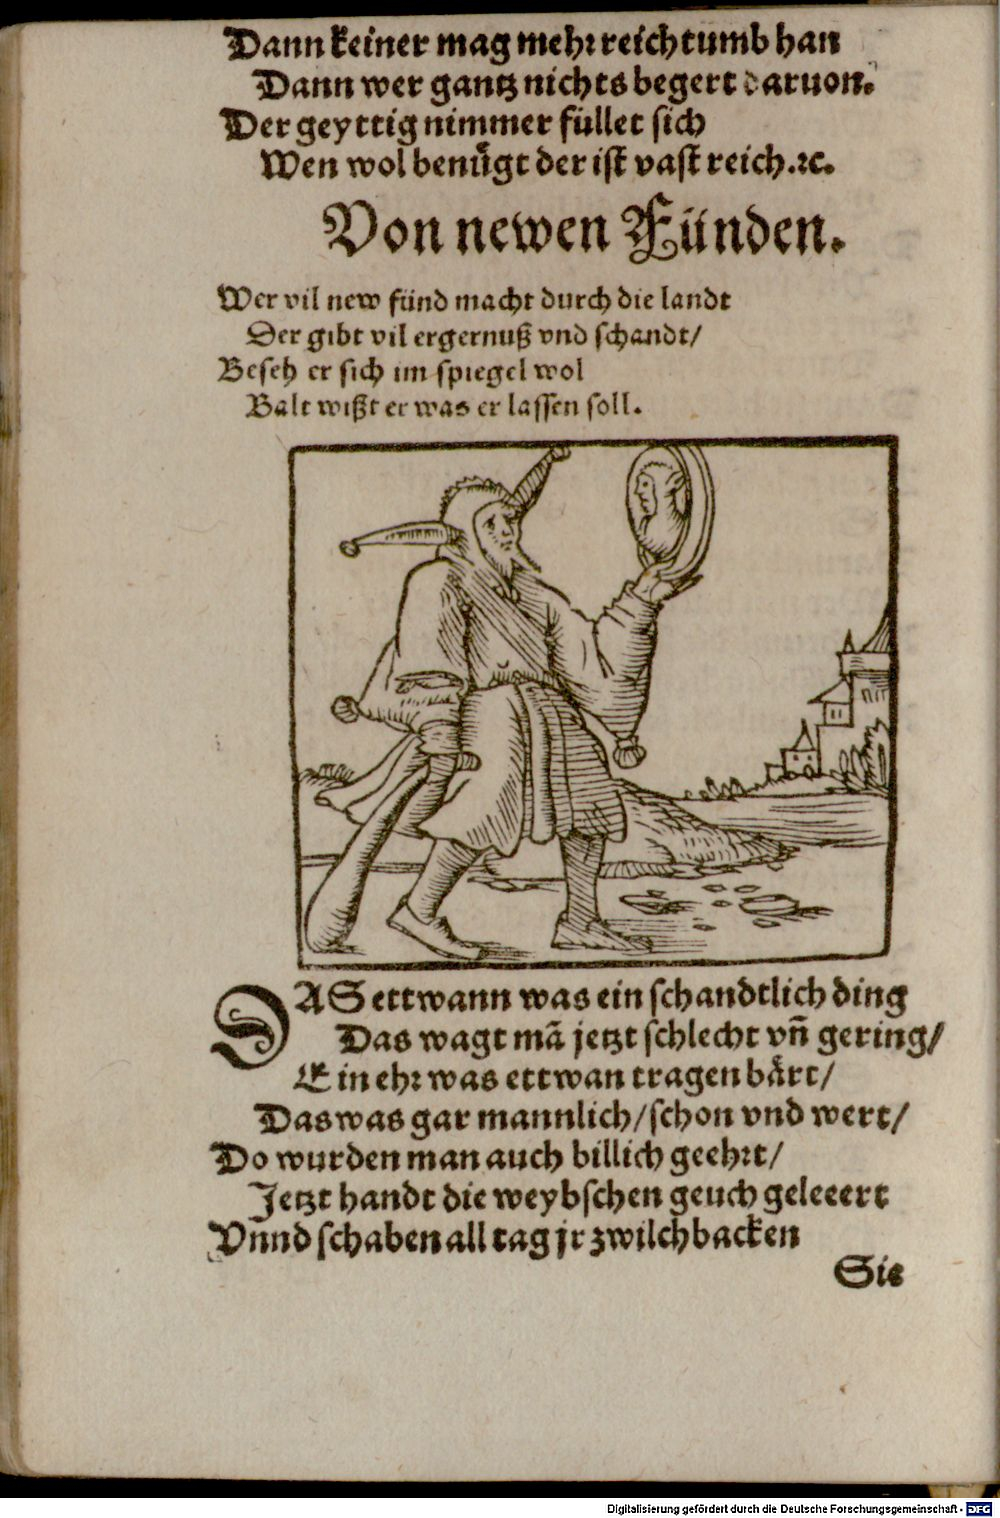 Dann keiner mag mehꝛ reichtumb han
Dann wer gantz nichts begert daruon.
Der geyttig nimmer füllet sich
Wen wol benuͤgt der ist vast reich.ꝛc.
Von newen Fünden.
Wer vil new fünd macht durch die landt
Der gibt vil ergernuß vnd schandt/
Beseh er sich im spiegel wol
Balt wißt er was er lassen soll.
DAS ettwann was ein schandtlich ding
Das wagt mā jetzt schlecht vn̄ gering/
Ein ehꝛ was ettwan tragen baͤrt/
Das was gar mannlich/schon vnd wert/
Do wurden man auch billich geehꝛt/
Jetzt handt die weybschen geuch geleeert
Vnnd schaben all tag jr zwilchbacken
Sie
Digitalisierung gefördert durch die Deutsche Forschungsgemeinschaft - DFG